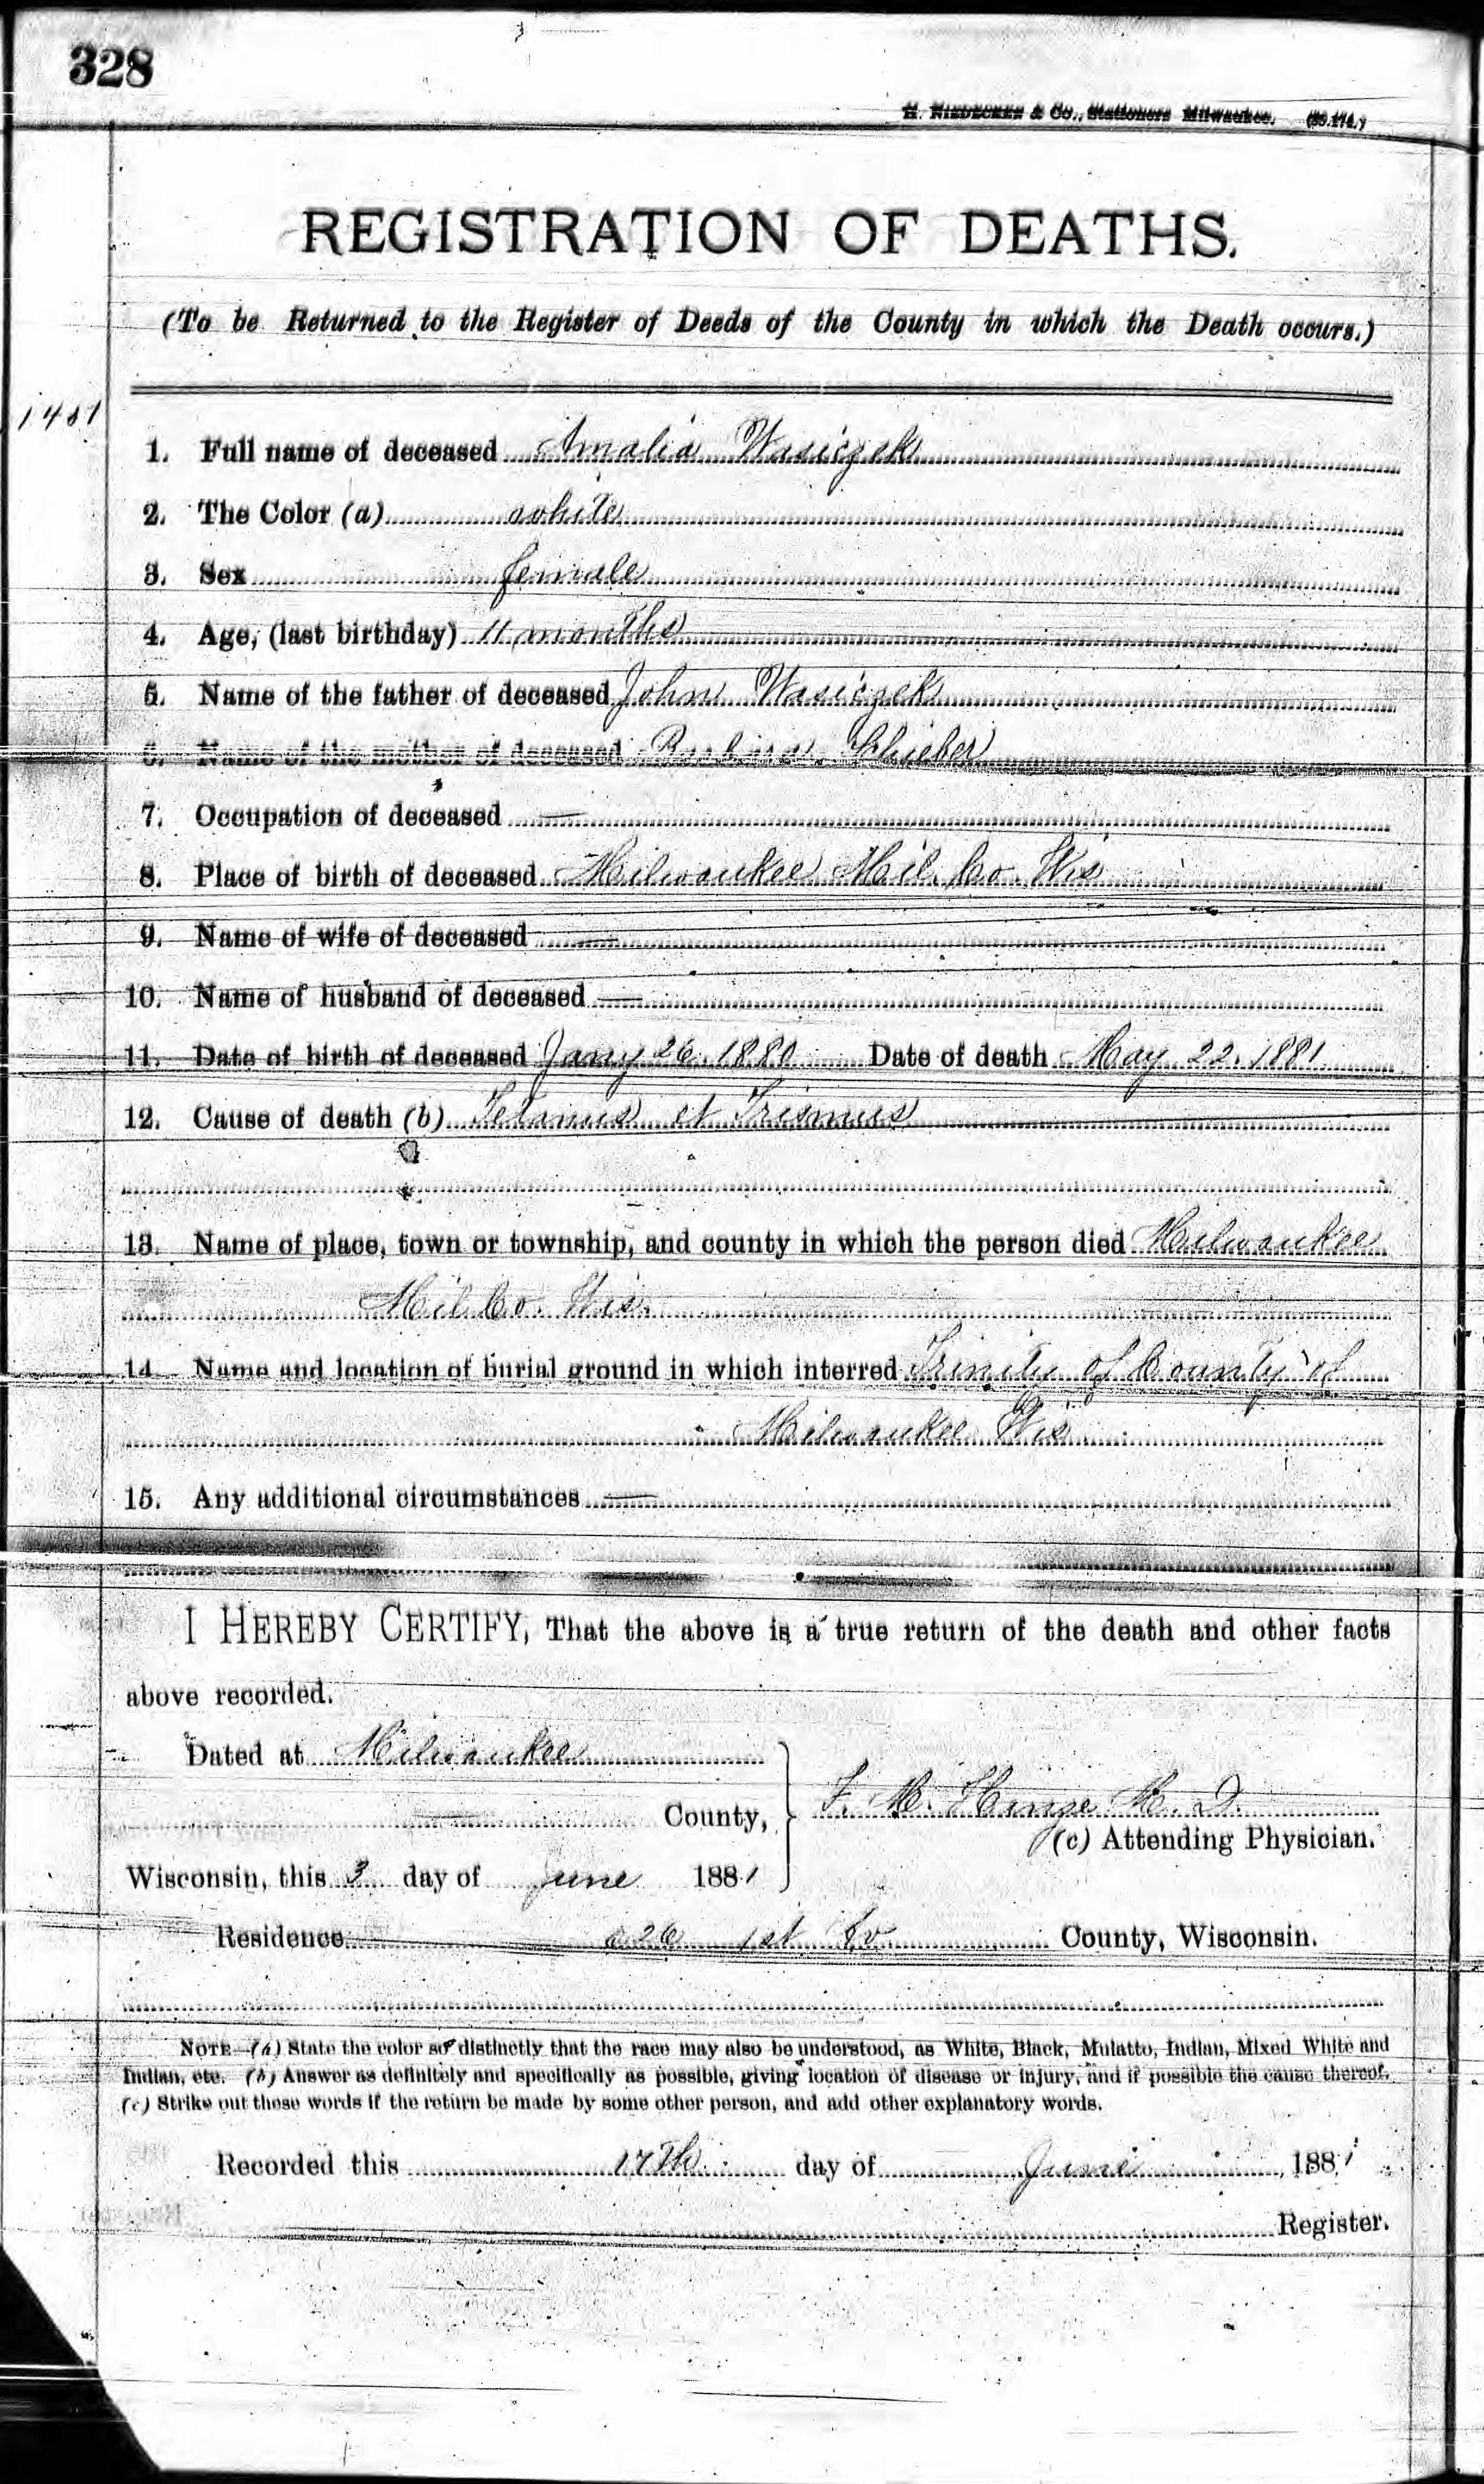 328
H. NIEDECKEN & Co., Stationers Milwaukee.
REGISTRATION OF DEATHS.
(To be Returned to the Register of Deeds of the County in which the Death occurs.)
1. Full name of deceased Amalia Wasiczek
2. The Color (a) white
3. Sex female
4. Age, (last birthday) 11 months
5. Name of the father of deceased John Wasiczek
6. Name of the mother of deceased Barbara Schieber
7. Occupation of deceased —
8. Place of birth of deceased Milwaukee Mil. Co. Wis
9. Name of wife of deceased —
10. Name of husband of deceased —
11. Date of birth of deceased Jany 26. 1880 Date of death May 22. 1881
12. Cause of death (b) Tetanus et Trismus
13. Name of place, town or township, and county in which the person died Milwaukee
Mil Co. Wis.
14. Name and location of burial ground in which interred Trinity of County of
Milwaukee Wis
15. Any additional circumstances —
I HEREBY CERTIFY, That the above is a true return of the death and other facts
above recorded.
Dated at Milwaukee
County, F. M. Hinze M. D.
(c) Attending Physician.
Wisconsin, this 3 day of June 1881
Residence 626 1st County, Wisconsin.
NOTE—(a) State the color so distinctly that the race may also be understood, as White, Black, Mulatto, Indian, Mixed White and
Indian, etc. (b) Answer as definitely and specifically as possible, giving location of disease or injury, and if possible the cause thereof.
(c) Strike out these words if the return be made by some other person, and add other explanatory words.
Recorded this 17th day of June 1881
Register.